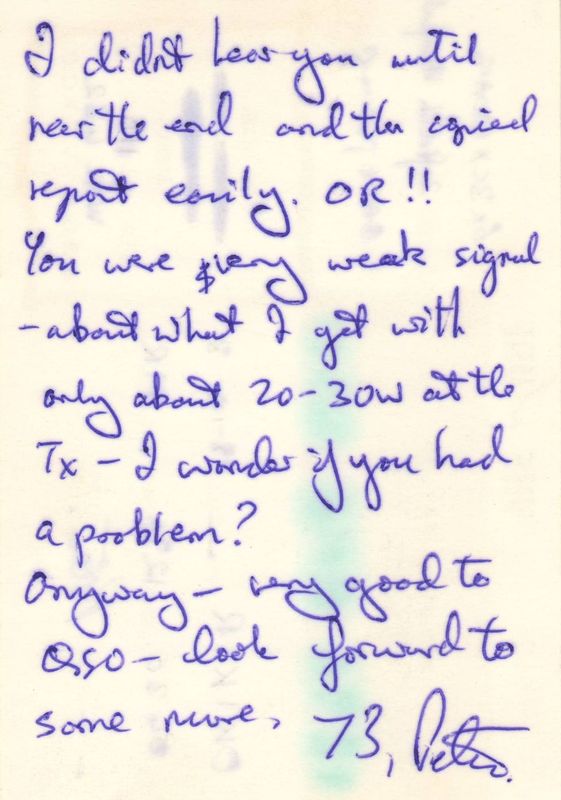 I didn't hear you until
near the end and then copied
report easily. OR!!
You were very weak signal
- about what I get with
only about 20-30W at the
Tx - I wonder if you had
a problem?
Anyway - very good to
QSO - look forward to
some more, 73, Peter.